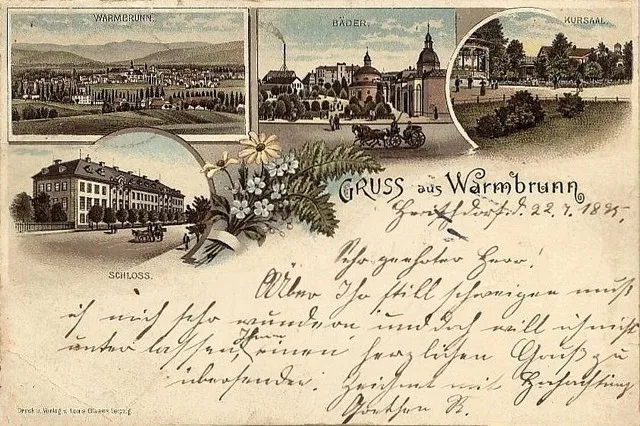 WARMBRUNN.
BÄDER.
KURSAAL.
SCHLOSS.
GRUSS aus Warmbrunn
Herischdorf d. 22.7.1895.
Sehr geehrter Herr!
Über Ihr still schweigen muß
ich mich sehr wundern und doch will ich nicht
unter lassen Ihnen einen herzlichen Gruß zu
übersenden. Zeichnet mit Hochachtung
Druck u. Verlag v. Louis Glaser, Leipzig.